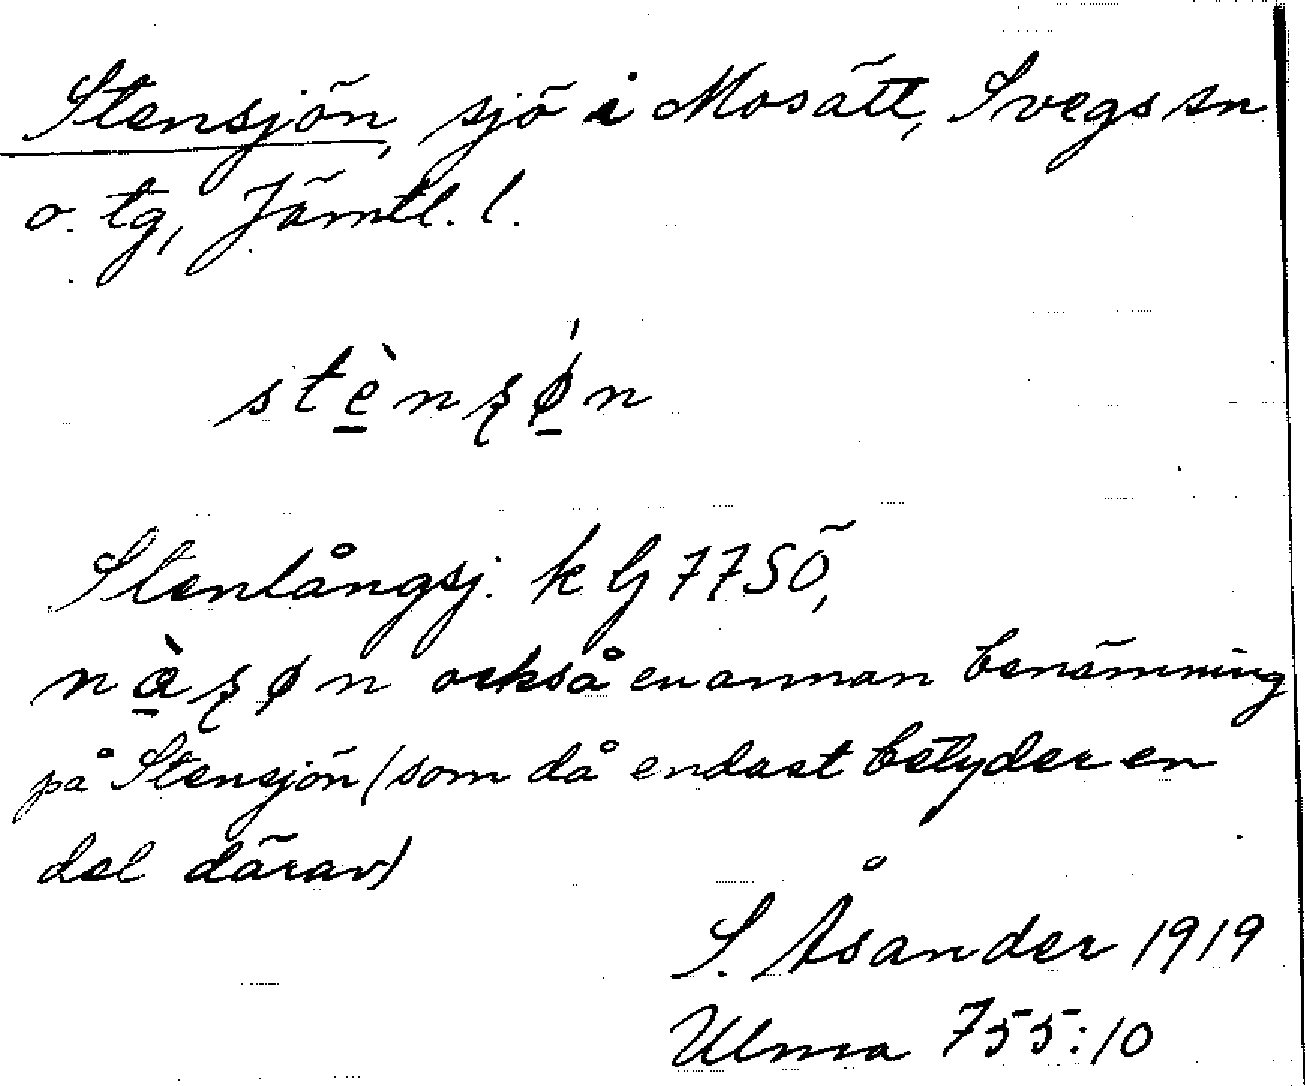 Stensjön, sjö i Mosätt, Svegs sn
o. tg, Jämtl. l.
stè̱nʂǿ̱n
Stenlångsj. k G 77 SÖ,
nà̱ʂøn också en annan benämning
på Stensjön (som då endast betyder en
del därav)
S. Åsander 1919
Ulma 755:10